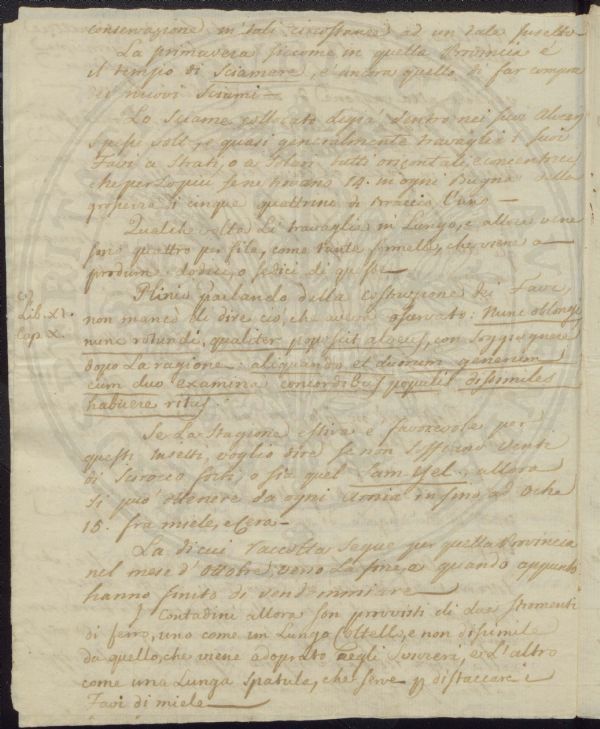 conservazione in tali circostanze ad un tale
La primavera siccome in quella Provincia è
il tempo di Sciamare, è ancora quello di far compra
di nuovi Sciami —
Lo Sciame collocato dentro nei suoi
quasi generalmente travaglie i suoi
Favi a Strati, o a Solari tutti orizontali, e concentrici
che per lo più se ne trovano 14. in ogni Bugna della
grossezza di cinque quattrini di Braccio l'uno —
Qualche volta Li travaglia in Lungo, e allora
son quattro per file, come tante formelle, che viene a
produrne dodici, o sedici di queste —
Plinio parlando della costruzione dei Favi,
Lib. XI.
Cap. X.
non mancò di dire ciò, che aveva osservato: Nunc oblongi
nunc rotundi, qualiter poposcit alveus, con soggiugnere
dopo La ragione: aliquando et duorum generum
cum duo examina concordibus populis dissimiles
habuere ritus.
Se La Stagione estiva è favorevole per
questi Insetti, voglio dire se non soffiano Venti
di Scirocco forti, o sia quel Sam Yel, allora
si può ottenere da ogni Arnia infino ad Oche
15. fra miele, e Cera —
La di cui raccolta segue per quella Provincia
nel mese d'Ottobre verso La fine, e quando appunto
hanno finito di vendemmiare —
I Contadini allora son provvisti di due stromenti
di ferro, uno come un Lungo Coltello, e non dissimile
da quello, che viene adoprato negli, e L'altro
come una Lunga Spatula, che serve p distaccare i
Favi di miele —